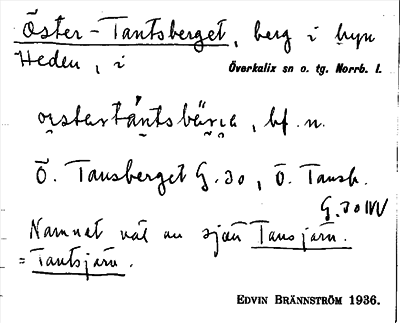 Öster-Tantsberget, berg i byn
Heden, i Överkalix sn o. tg. Norrb. l.
, bf. n.
Ö. Tansberget G. 30, Ö. Tansb.
G. 30 NV
Namnet väl av sjön Tansjärn.
= Tantsjärn.
EDVIN BRÄNNSTRÖM 1936.